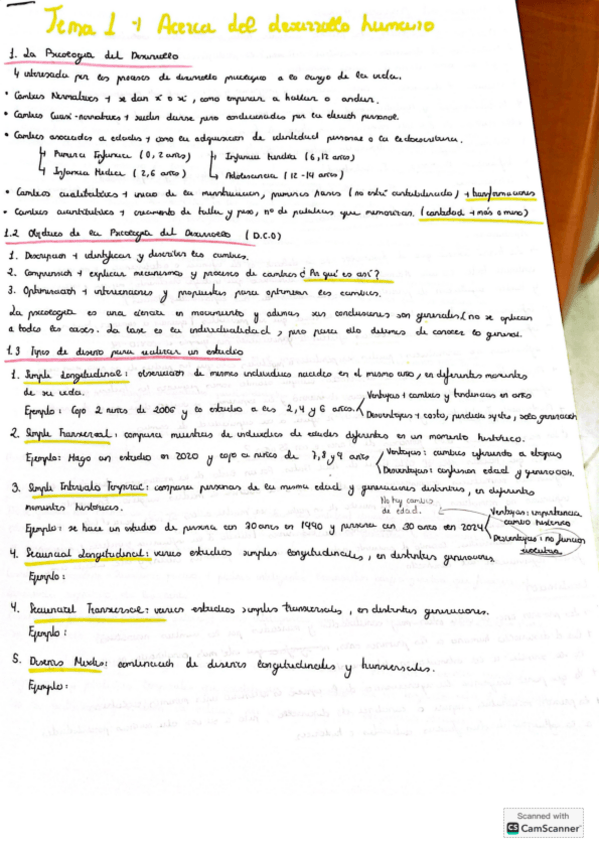 Tema 1 → Acerca del desarrollo humano
1. La Psicología del Desarrollo
↳ interesada por los procesos de desarrollo psicológico a lo largo de la vida.
• Cambios Normativos → se dan x o x, como empezar a hablar o andar.
• Cambios Cuasi-normativos → suelen darse pero condicionados por tu elección personal.
• Cambios asociados a edades → como la adquisición de identidad personal o la lectoescritura.
↳ Primera Infancia (0, 2 años) ↳ Infancia tardía (6, 12 años)
↳ Infancia Media (2, 6 años) ↳ Adolescencia (12-14 años)
• Cambios cualitativos → inicio de la menstruación, primeras frases (no está contabilizado) → transformaciones
• Cambios cuantitativos → crecimiento de talla y peso, nº de palabras que memorizan. (cantidad → más o menos)
1.2 Objetivos de la Psicología del Desarrollo (D.C.O)
1. Descripción → identificar y describir los cambios.
2. Comprensión → explicar mecanismos y procesos de cambios ¿Por qué es así?
3. Optimización → intervenciones y propuestas para optimizar los cambios.
La psicología es una ciencia en movimiento y además sus conclusiones son generales (no se aplican
a todos los casos. La base es la individualidad, pero para ello debemos de conocer lo general.
1.3 Tipos de diseño para realizar un estudio
1. Simple Longitudinal: observación de mismos individuos nacidos en el mismo año, en diferentes momentos
de su vida.
Ejemplo: Cojo 2 niños de 2006 y lo estudio a los 2, 4 y 6 años.
Ventajas → cambios y tendencias en años
Desventajas → costo, perdida sujetos, solo generación
2. Simple Transversal: compara muestras de individuos de edades diferentes en un momento histórico.
Ejemplo: Hago un estudio en 2020 y cojo a niños de 7, 8 y 9 años
Ventajas: cambios referando a etapas
Desventajas: confusión edad y generación.
3. Simple Intervalo Temporal: compara personas de la misma edad y generaciones distintas, en diferentes
momentos históricos.
No hay cambio
de edad.
Ejemplo: se hace un estudio de persona con 30 años en 1990 y persona con 30 años en 2024
Ventajas: importancia
cambio histórico
Desventajas: no función
evolutiva
4. Secuencial Longitudinal: varios estudios simples longitudinales, en distintas generaciones
Ejemplo:
4. Secuencial Transversal: varios estudios simples transversales, en distintas generaciones.
Ejemplo:
5. Diseños Mixtos: combinación de diseños longitudinales y transversales.
Ejemplo:
Scanned with
CS CamScanner